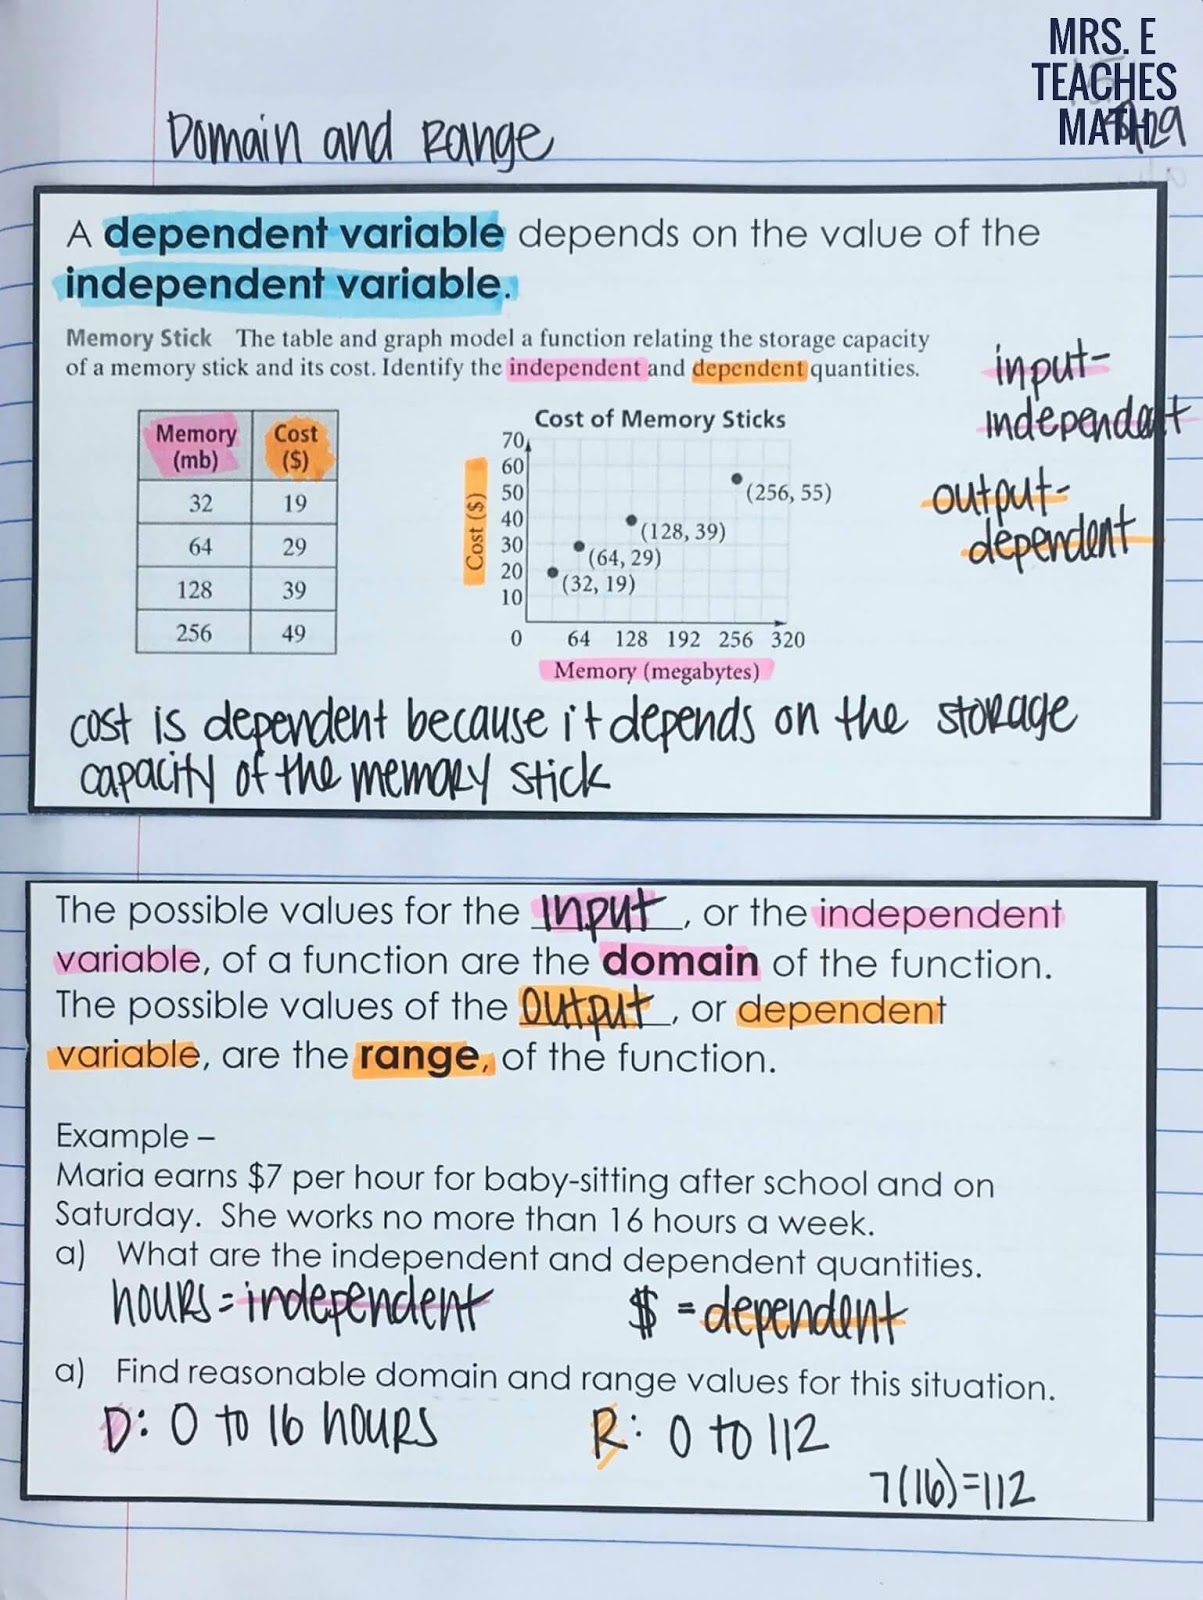 MRS. E
TEACHES
MATH
Domain and Range
A dependent variable depends on the value of the
independent variable.
Memory Stick The table and graph model a function relating the storage capacity
of a memory stick and its cost. Identify the independent and dependent quantities.
input-
independent
output-
dependent
Memory (mb) Cost ($)
32 19
64 29
128 39
256 49
Cost of Memory Sticks
Cost ($)
70
60
50
40
30
20
10
(256, 55)
(128, 39)
(64, 29)
(32, 19)
0 64 128 192 256 320
Memory (megabytes)
cost is dependent because it depends on the storage
capacity of the memory stick
The possible values for the input, or the independent
variable, of a function are the domain of the function.
The possible values of the output, or dependent
variable, are the range, of the function.
Example –
Maria earns $7 per hour for baby-sitting after school and on
Saturday. She works no more than 16 hours a week.
a) What are the independent and dependent quantities.
hours = independent $ = dependent
a) Find reasonable domain and range values for this situation.
D: 0 to 16 hours R: 0 to 112
7(16)=112